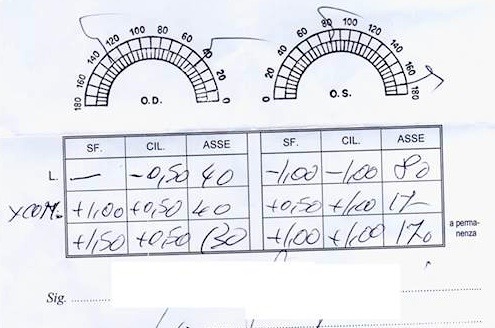 180 160 140 120 100 80 60 40 20 0
0 20 40 60 80 100 120 140 160 180
O.D. O.S.
SF. CIL. ASSE SF. CIL. ASSE
L. — -0,50 40 -1,00 -1,00 80
+1,00 +0,50 40 +0,50 +1,00
+1,50 +0,50 130 +1,00 +1,00 170 a perma-
nenza
Sig.